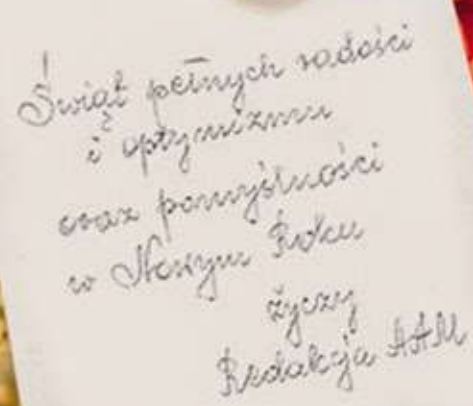 Świąt pełnych radości
i optymizmu
oraz pomyślności
w Nowym Roku
życzy
Redakcja AAM